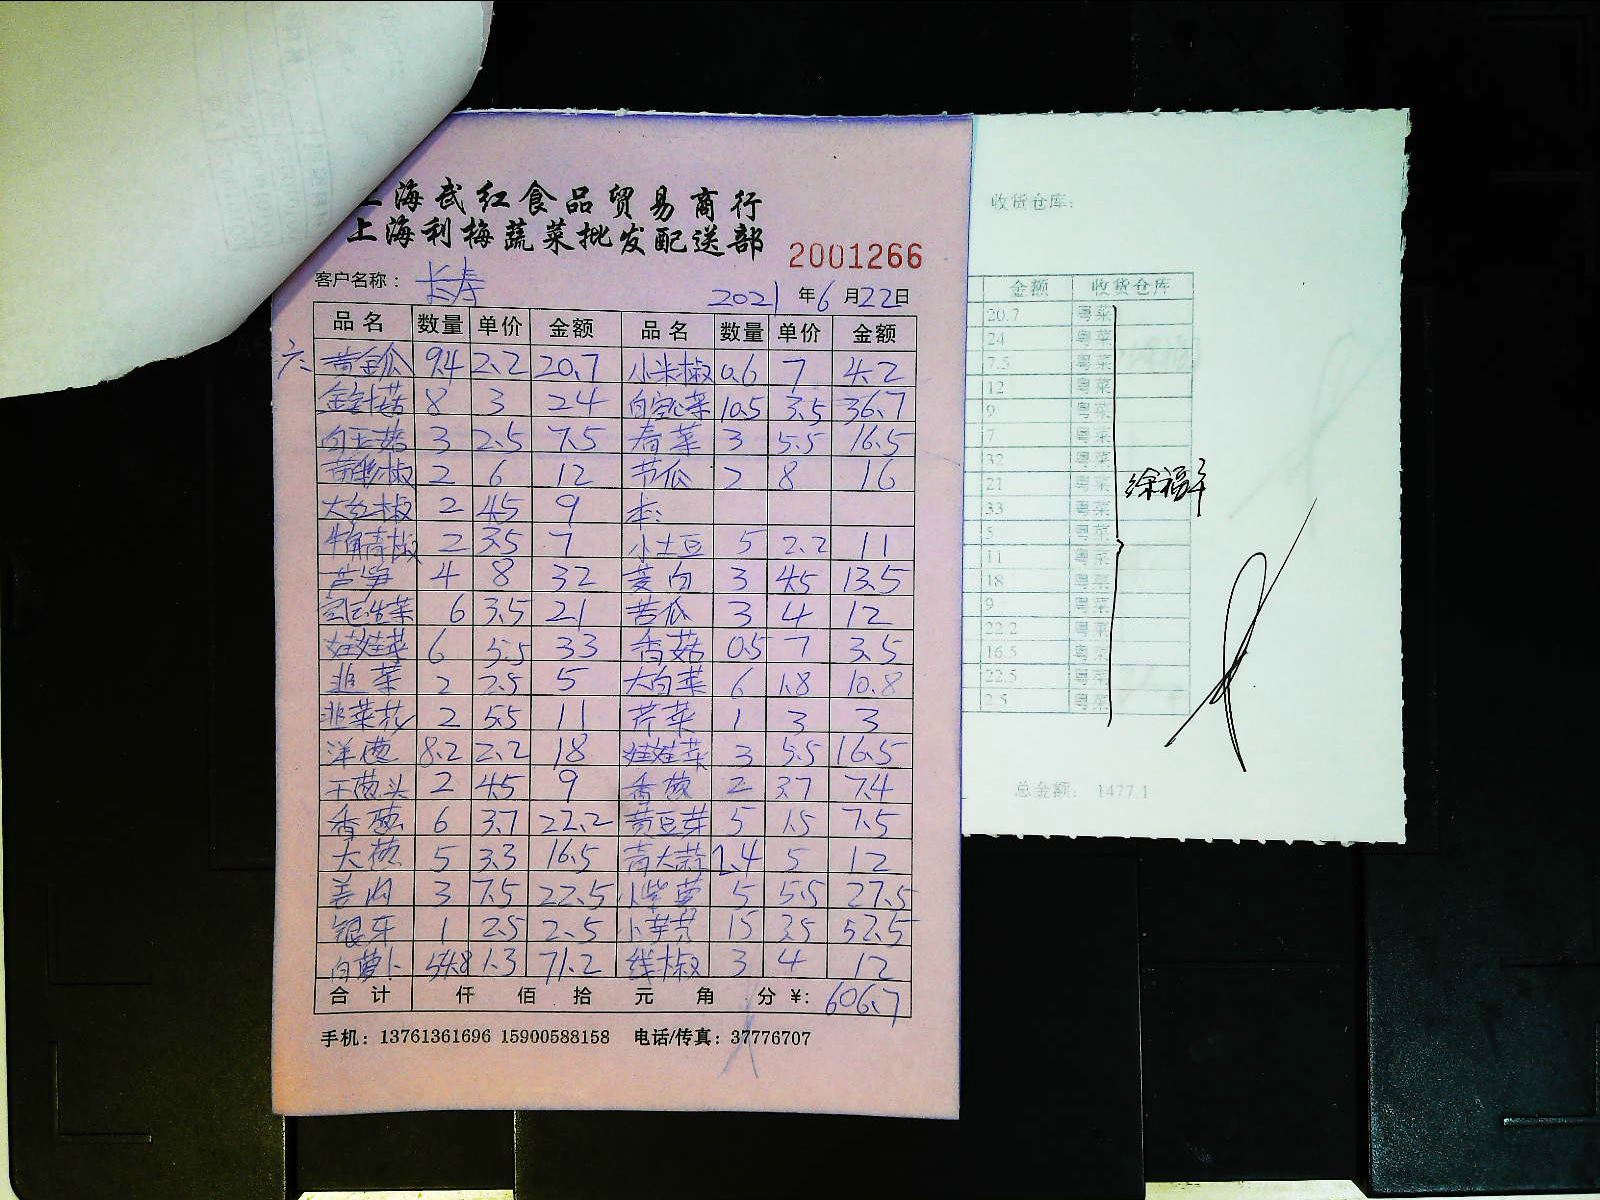 上海武红食品贸易商行
上海利梅蔬菜批发配送部
2001266
客户名称： 长寿
2021 年 6 月 22 日
品名 数量 单价 金额 品名 数量 单价 金额
六、 黄金瓜 9.4 2.2 20.7 小米椒 0.6 7 4.2
金针菇 8 3 24 白空心菜 10.5 3.5 36.7
白玉菇 3 2.5 7.5 春菜 3 5.5 16.5
黄彩椒 2 6 12 节瓜 2 8 16
大红椒 2 4.5 9 本：
牛角青椒 2 3.5 7 小土豆 5 2.2 11
芦笋 4 8 32 茭白 3 4.5 13.5
生菜 6 3.5 21 苦瓜 3 4 12
娃娃菜 6 5.5 33 香菇 0.5 7 3.5
韭菜 2 2.5 5 大白菜 6 1.8 10.8
韭菜花 2 5.5 11 芹菜 1 3 3
洋葱 8.2 2.2 18 娃娃菜 3 5.5 16.5
干葱头 2 4.5 9 香葱 2 3.7 7.4
香葱 6 3.7 22.2 黄豆芽 5 1.5 7.5
大葱 5 3.3 16.5 青大蒜 2.4 5 12
姜肉 3 7.5 22.5 5 5.5 27.5
银牙 1 2.5 2.5 15 3.5 52.5
白萝卜 54.8 1.3 71.2 线椒 3 4 12
合计 仟 佰 拾 元 角 分 ¥: 606.7
手机：13761361696 15900588158 电话/传真：37776707
收货仓库：
金额 收货仓库
20.7 粤菜
24 粤菜
7.5 粤菜
12 粤菜
9 粤菜
7 粤菜
32 粤菜
21 粤菜
33 粤菜
5 粤菜
11 粤菜
18 粤菜
9 粤菜
22.2 粤菜
16.5 粤菜
22.5 粤菜
2.5 粤菜
徐福
总金额： 1477.1